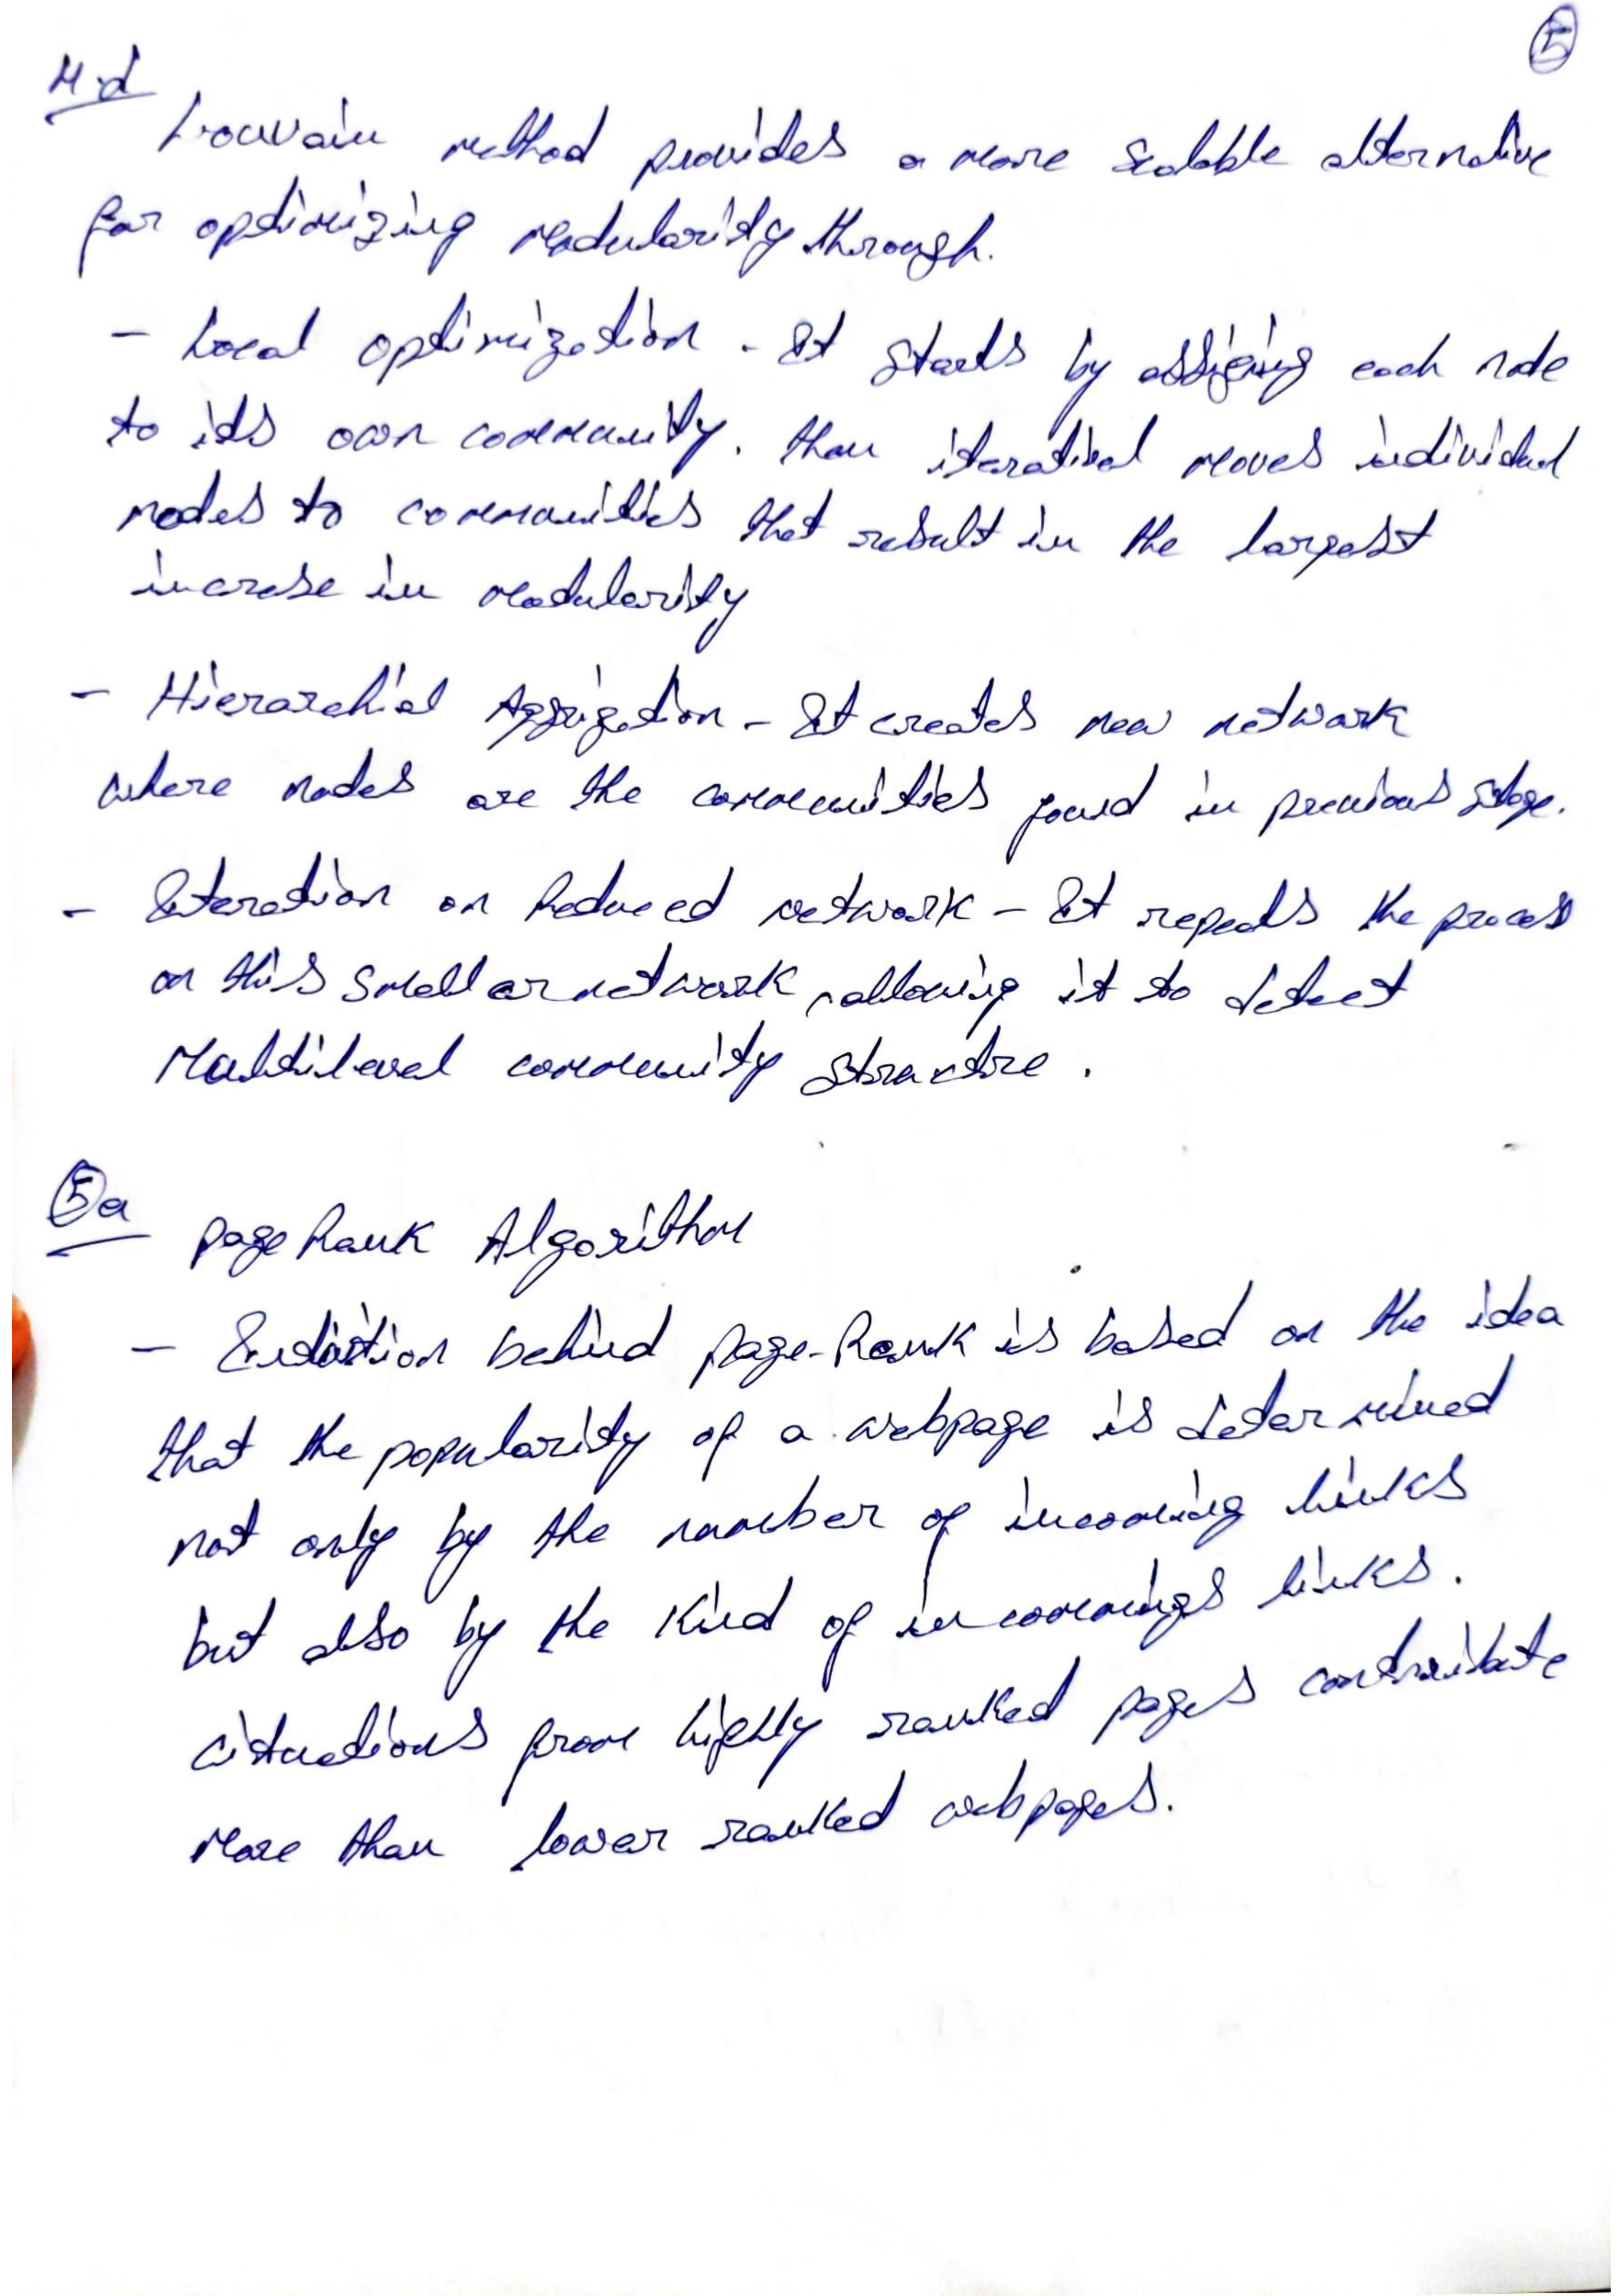 5
4.d
Louvain method provides a more scalable alternative
for optimizing modularity through.
- Local optimization - It starts by assigning each node
to its own community. then iterational moves individual
nodes to communities that result in the largest
increse in modularity
- Hierarchial Aggrigation - It creates new network
where nodes are the communities found in previous stage.
- Iteration on Reduced network - It repeats the process
on this smaller network, allowing it to detect
Multilevel community structre.
5a
page Rank Algorithm
- Intuition behind page-Rank is based on the idea
that the popularity of a webpage is determined
not only by the number of incoming links
but also by the kind of incommings links.
citnations from highly ranked pages contribute
More than lower ranked webpages.